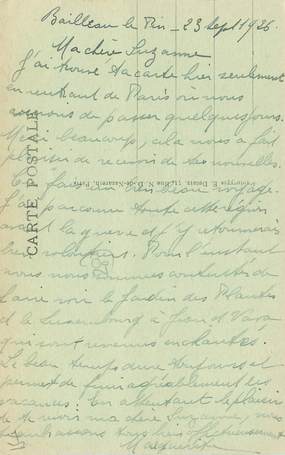 Bailleau le Pin _ 23 Sept 1926.
Ma chère Suzanne
J'ai trouvé ta carte hier seulement
en rentrant de Paris où nous
venons de passer quelques jours.
Merci beaucoup, cela nous a fait
plaisir de recevoir de tes nouvelles.
Tu as fait un bien beau voyage.
J'ai parcouru toute cette région
avant la guerre et j'y retournerais
bien volontiers. Pour l'instant
nous nous sommes contentés de
faire voir le Jardin des Plantes
et le Luxembourg à Jean et
qui sont revenus enchantés.
Le beau temps dure toujours et
permet de finir agréablement les
vacances. En attendant le plaisir
de te revoir ma chère Suzanne, nous
t'embrassons tous bien affectueusement
Marguerite
CARTE POSTALE